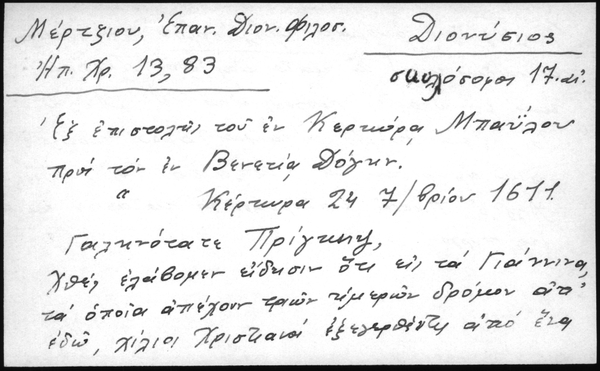 Μέρτζιου, Ἐπαν. Διον. Φιλοσ.
Ἠπ. Χρ. 13, 83
Διονύσιος
σκυλόσοφος 17. αἰ.
Ἐξ ἐπιστολῆς τοῦ ἐν Κερκύρᾳ Μπαΰλου
πρὸς τὸν ἐν Βενετίᾳ Δόγην.
" Κέρκυρα 24 7/βρίου 1611
Γαληνότατε Πρίγκηψ,
Χθὲς ἐλάβομεν εἴδησιν ὅτι εἰς τὰ Γιάννινα,
τὰ ὁποῖα ἀπέχουν τριῶν ἡμερῶν δρόμον ἀπ'
ἐδῶ, χίλιοι Χριστιανοὶ ἐξεγερθέντες ἀπό ἕνα